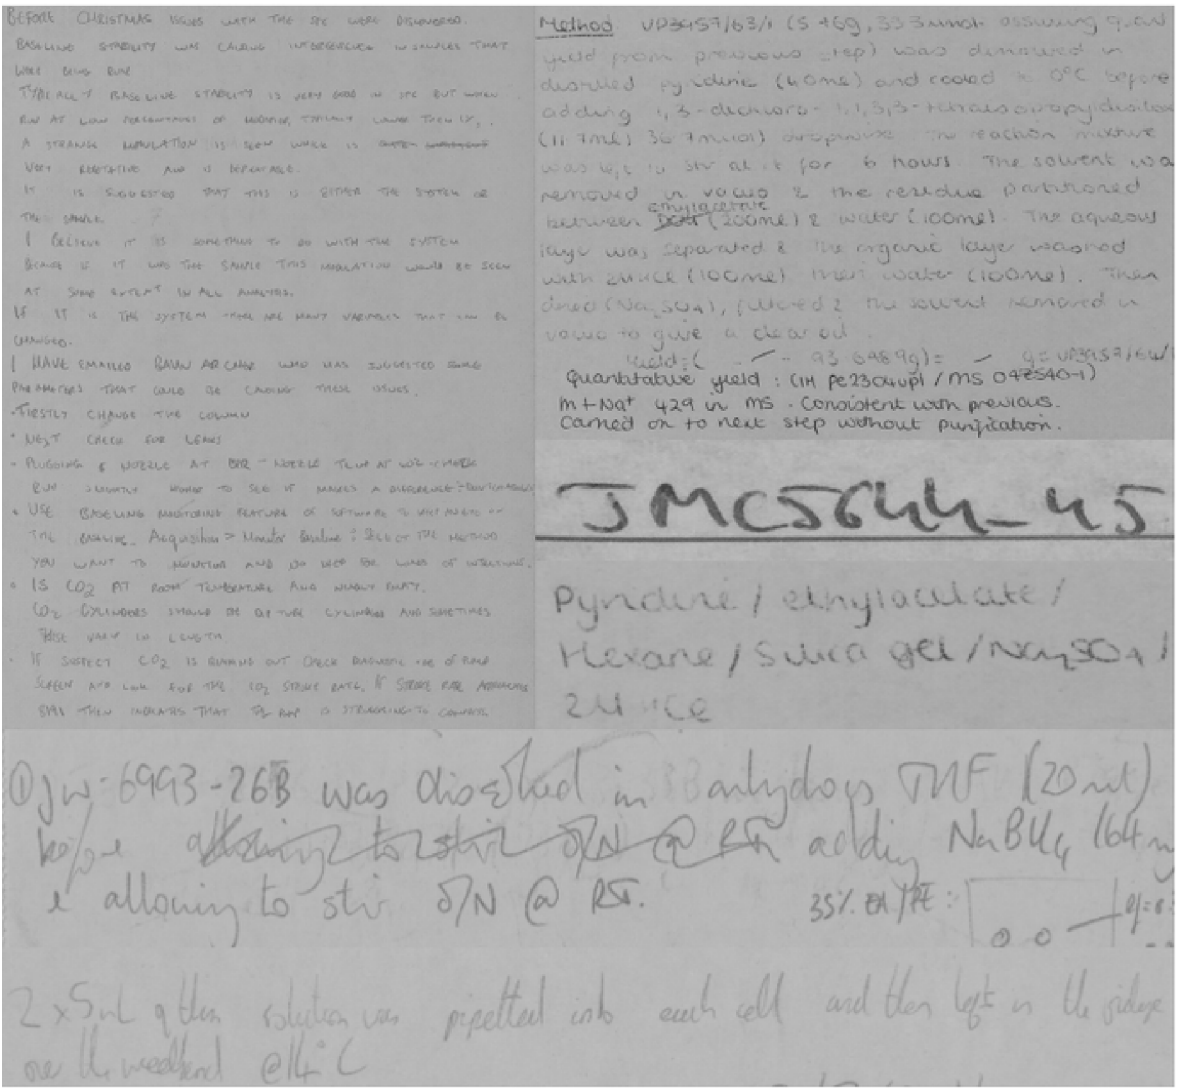 BEFORE CHRISTMAS ISSUES WITH THE SFC WERE DISCOVERED.
BASELINE STABILITY WAS CAUSING INTERFERENCES IN SAMPLES THAT
WERE BEING RUN
TYPICALLY BASELINE STABILITY IS VERY GOOD IN SFC BUT WHEN
RUN AT LOW PERCENTAGES OF MODIFIER, TYPICALLY LOWER THEN
A STRANGE MODULATION IS SEEN WHICH IS
VERY REPETATIVE AND IS REPEATABLE.
IT IS SUGGESTED THAT THIS IS EITHER THE SYSTEM OR
THE SAMPLE.
I BELIEVE IT IS SOMETHING TO DO WITH THE SYSTEM
BECAUSE IF IT WAS THE SAMPLE THIS MODULATION WOULD BE SEEN
AT SOME EXTENT IN ALL ANALYSIS.
IF IT IS THE SYSTEM THERE ARE MANY VARIABLES THAT CAN BE
CHANGED.
I HAVE EMAILED WHO HAS SUGGESTED SOME
PARAMETERS THAT COULD BE CAUSING THESE ISSUES.
• FIRSTLY CHANGE THE COLUMN
• NEXT CHECK FOR LEAKS
- PLUGGING & NOZZLE AT BPR - NOZZLE TEMP AT 60°C - CHECK
RUN SLIGHTLY HIGHER TO SEE IF MAKES A DIFFERENCE
• USE BASELINE MONITORING FEATURE OF SOFTWARE TO
THE BASELINE. Acquisition > Monitor Baseline : SELECT THE METHOD
YOU WANT TO MONITOR AND NO NEED FOR LOADS OF INJECTIONS.
• IS CO2 AT ROOM TEMPERATURE AND NEARLY EMPTY.
CO2 CYLINDERS SHOULD BE DIP TUBE CYLINDERS AND SOMETIMES
THESE VARY IN LENGTH
• IF SUSPECT CO2 IS RUNNING OUT CHECK DIAGNOSTIC OF PUMP
SCREEN AND LOOK FOR THE CO2 STROKE RATE. IF STROKE RATE APPROACHES
THEN INDICATES THAT THE PUMP IS STRUGGLING TO
Method VP3957/63/1 (5.76g, 33.3mmol assuming quant
yield from previous step) was dissolved in
distilled pyridine (40ml) and cooled to 0°C before
adding 1,3-dichloro-1,1,3,3-tetraisopropyldisiloxane
(11.7ml, 36.7mmol) dropwise. The reaction mixture
was left to stir at rt for 6 hours. The solvent was
removed in vacuo & the residue partitioned
between ethylacetate (200ml) & water (100ml). The aqueous
layer was separated & the organic layer washed
with 2M HCl (100ml) then water (100ml). Then
dried (Na2SO4), filtered & the solvent removed in
vacuo to give a clear oil.
Yield: ( 93.6489g) = g = VP3957/64/1
Quantitative yield : (1H pe2304vp1 / MS 042540-1)
m+Na+ 429 in ms. Consistent with previous.
Carried on to next step without purification.
JMC5644-45
Pyridine / ethylacetate /
Hexane / Silica gel / Na2SO4 /
2M HCl
① JW-6993-26B was dissolved in anhydrous THF (20ml)
before allowing to stir O/N @ RT adding NaBH4 (64m
& allowing to stir O/N @ RT.
35% EA/PE :
2 x 5mL of this solution was pipetted into each cell and then left in the fridge
over the weekend @ 14°C